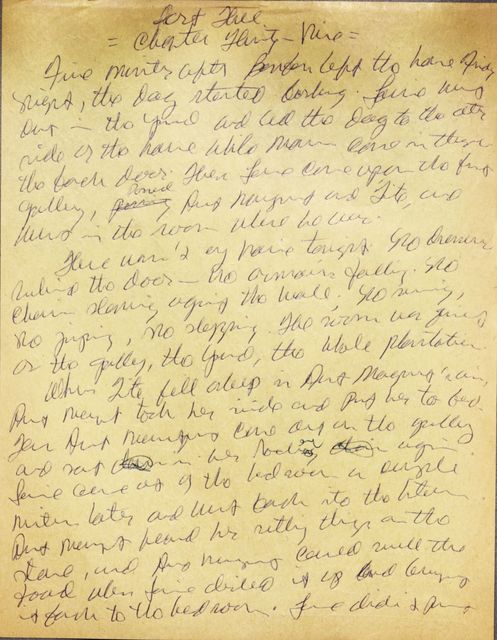 = Chapter Thirty-Nine =
Five minutes after left the house Friday
night, the dog started barking. Louise went
out in the yard and led the dog to the other
side of the house while Marcus came in through
the back door. Then Louise came upon the front
gallery, passed Aunt Margaret and Tite, and
went in the room where he was.
There wasn't any noise tonight. No dresser
behind the door — no armoire falling. No
chair slamming against the wall. No running,
no jumping, no slapping. The room was quiet
as the gallery, the yard, the whole plantation.
When Tite fell asleep in Aunt Margaret's arms,
Aunt Margaret took her inside and put her to bed.
Then Aunt Margaret came out on the gallery
and sat in her again.
Louise came out of the bedroom a couple
minutes later and went back into the kitchen.
Aunt Margaret heard her setting things on the
stove, and Aunt Margaret could smell the
food when Louise dished it up and brought
it back to the bedroom. Louise didn't